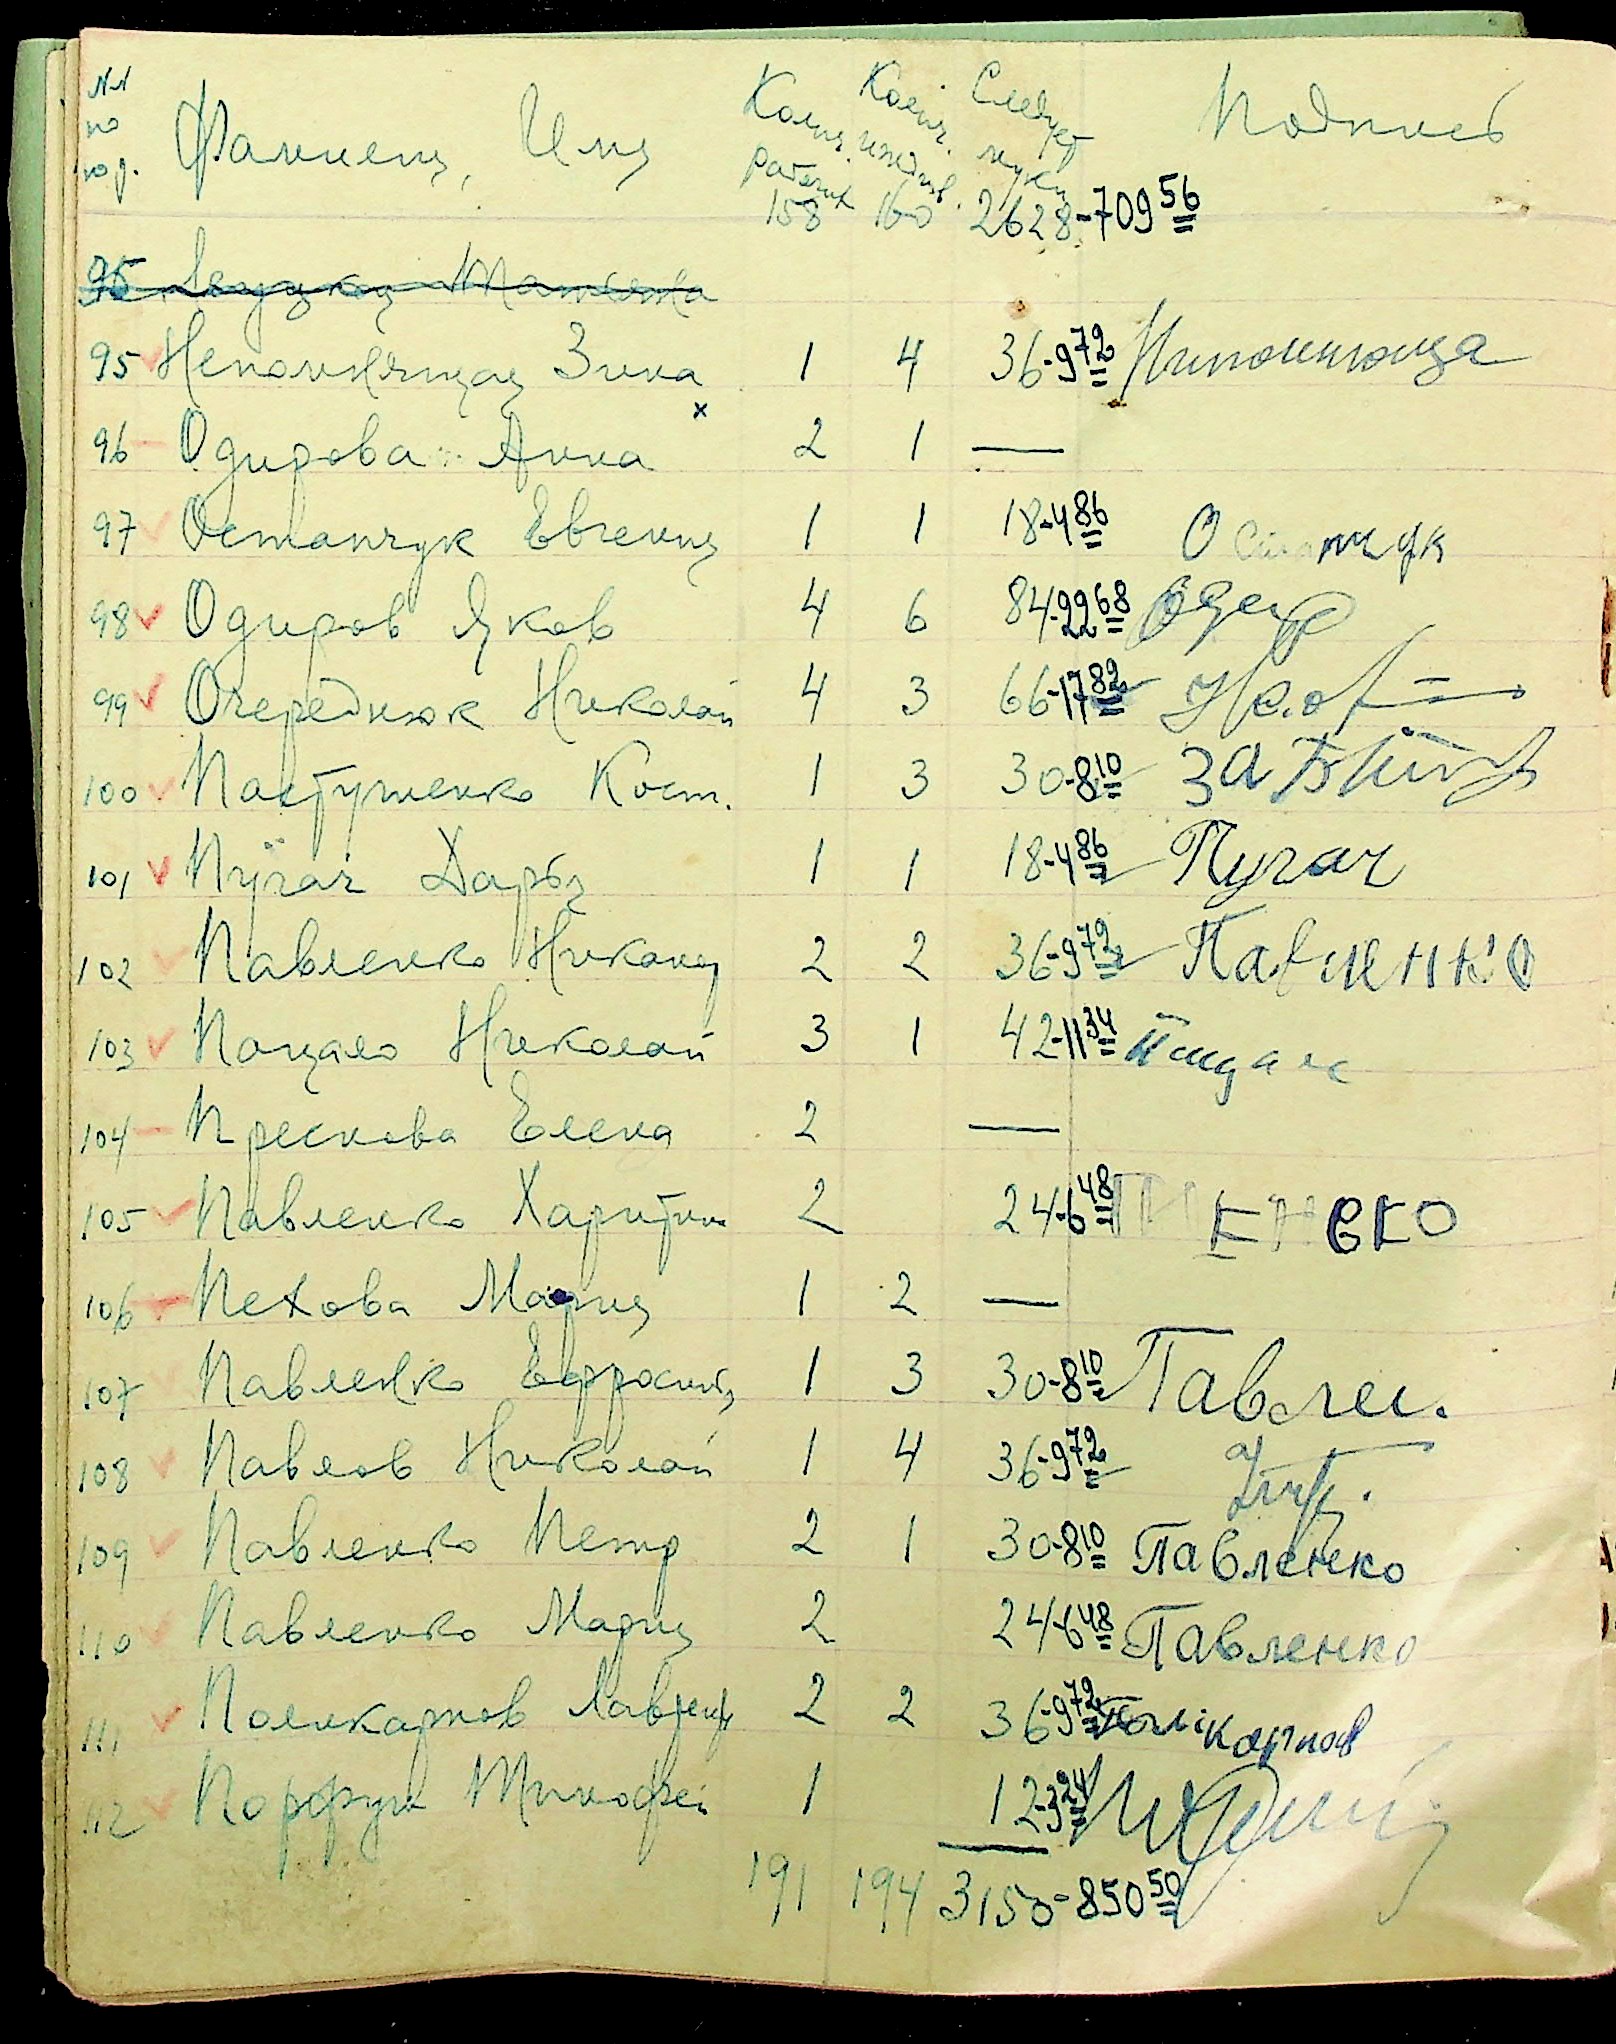 №№ по пор. Фамилия, Имя Колич. работих Колич. иждив. Следует муки Подпись
158 160 2628-709 56
95 Татьяна
95 Непомнящая Зина 1 4 36-9 72
96 Одирова Анна 2 1 —
97 Остапчук Евгения 1 1 18-4 86 Остапчук
98 Одиров Яков 4 6 84-22 68
99 Очереднюк Николай 4 3 66-17 82
100 Пастушенко Кост. 1 3 30-8 10 За
101 Пугач Дарья 1 1 18-4 86 Пугач
102 Павленко 2 2 36-9 72 Павленко
103 Пацало Николай 3 1 42-11 34
104 Прескова Елена 2 —
105 Павленко Харитин 2 24-6 48
106 Пехова Мария 1 2 —
107 Павленко Ефросиния 1 3 30-8 10 Павлен.
108 Павлов Николай 1 4 36-9 72
109 Павленко Петр 2 1 30-8 10 Павленко
110 Павленко Мария 2 24-6 48 Павленко
111 Поликарпов Лаврен 2 2 36-9 72 Полікарпов
112 Порфун Тимофей 1 12-3 24
191 194 3150-850 50